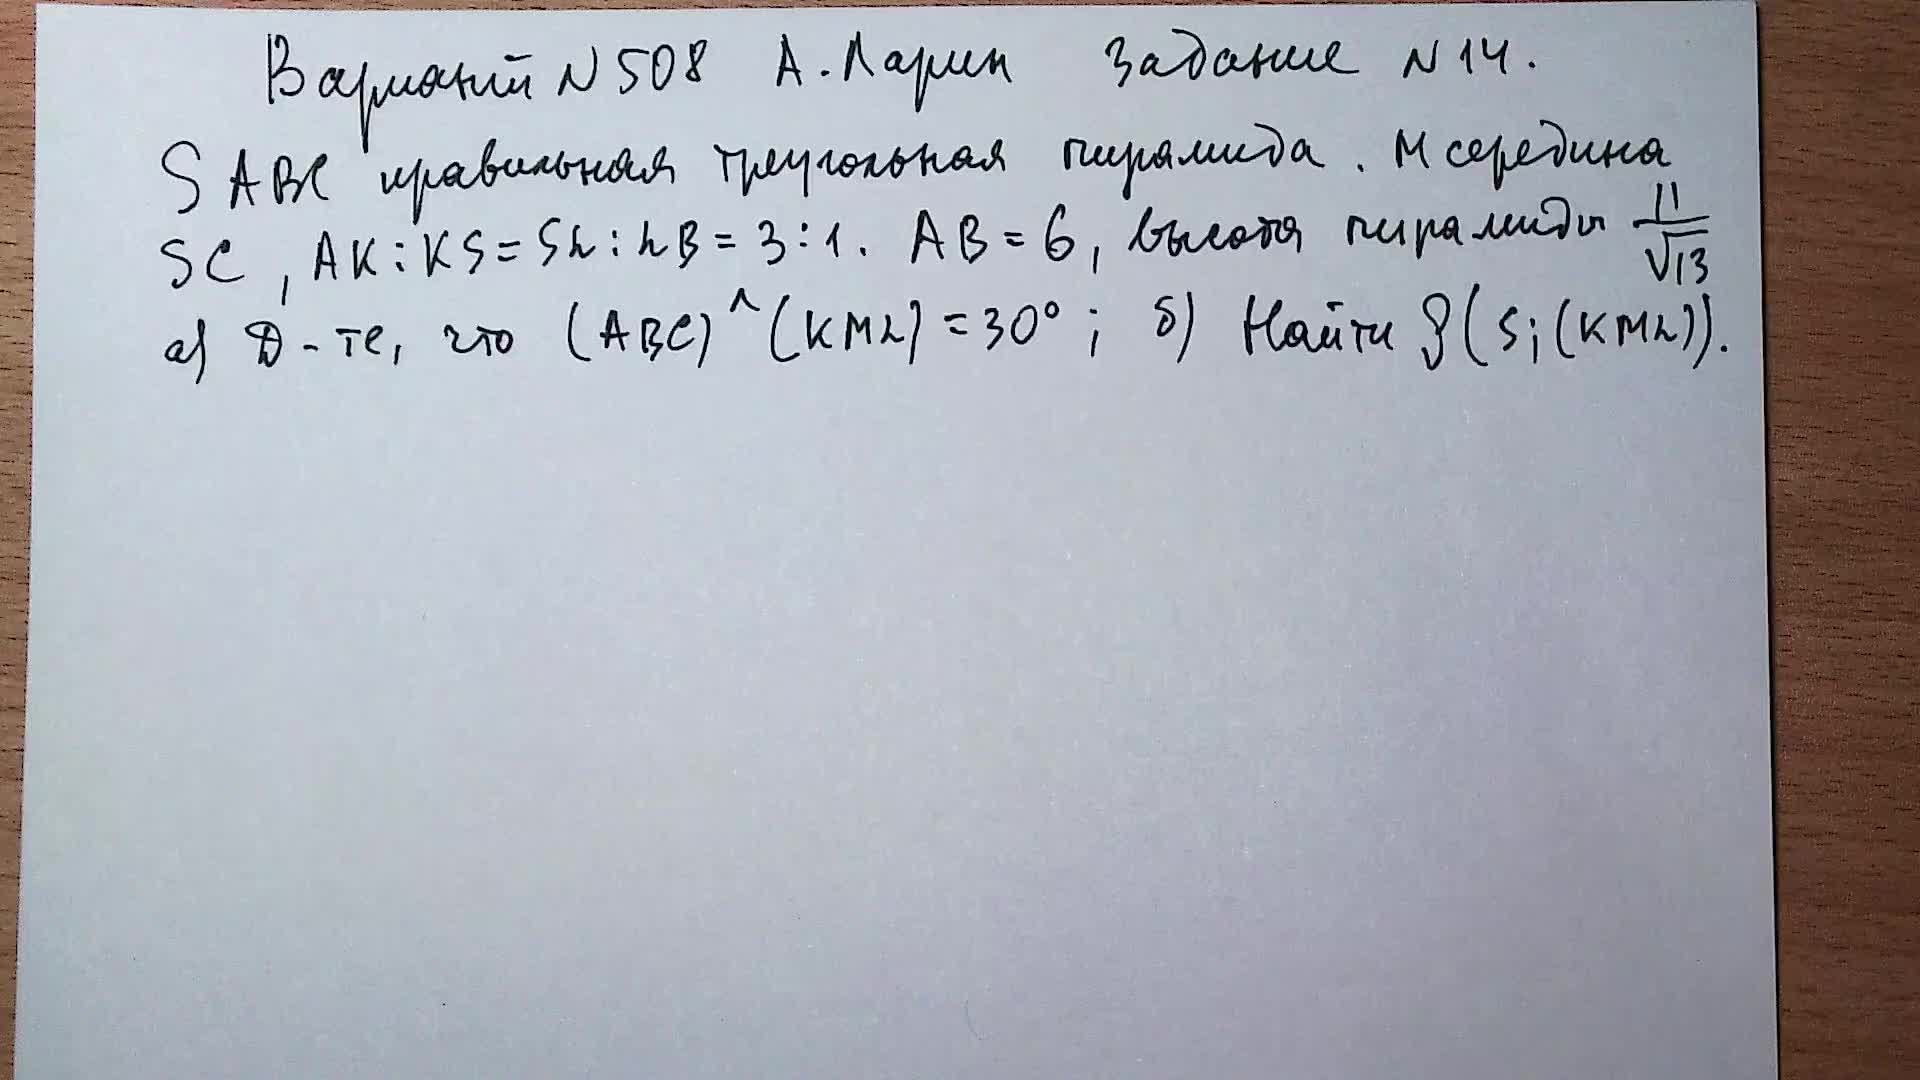 Вариант N 508 А. Ларин Задание N 14.
SABC правильная треугольная пирамида. М середина
SC, AK:KS = SL:LB = 3:1. AB = 6, высота пирамиды 11/√13
а) Д-те, что (ABC)^(KML) = 30°; б) Найти ρ(S;(KML)).